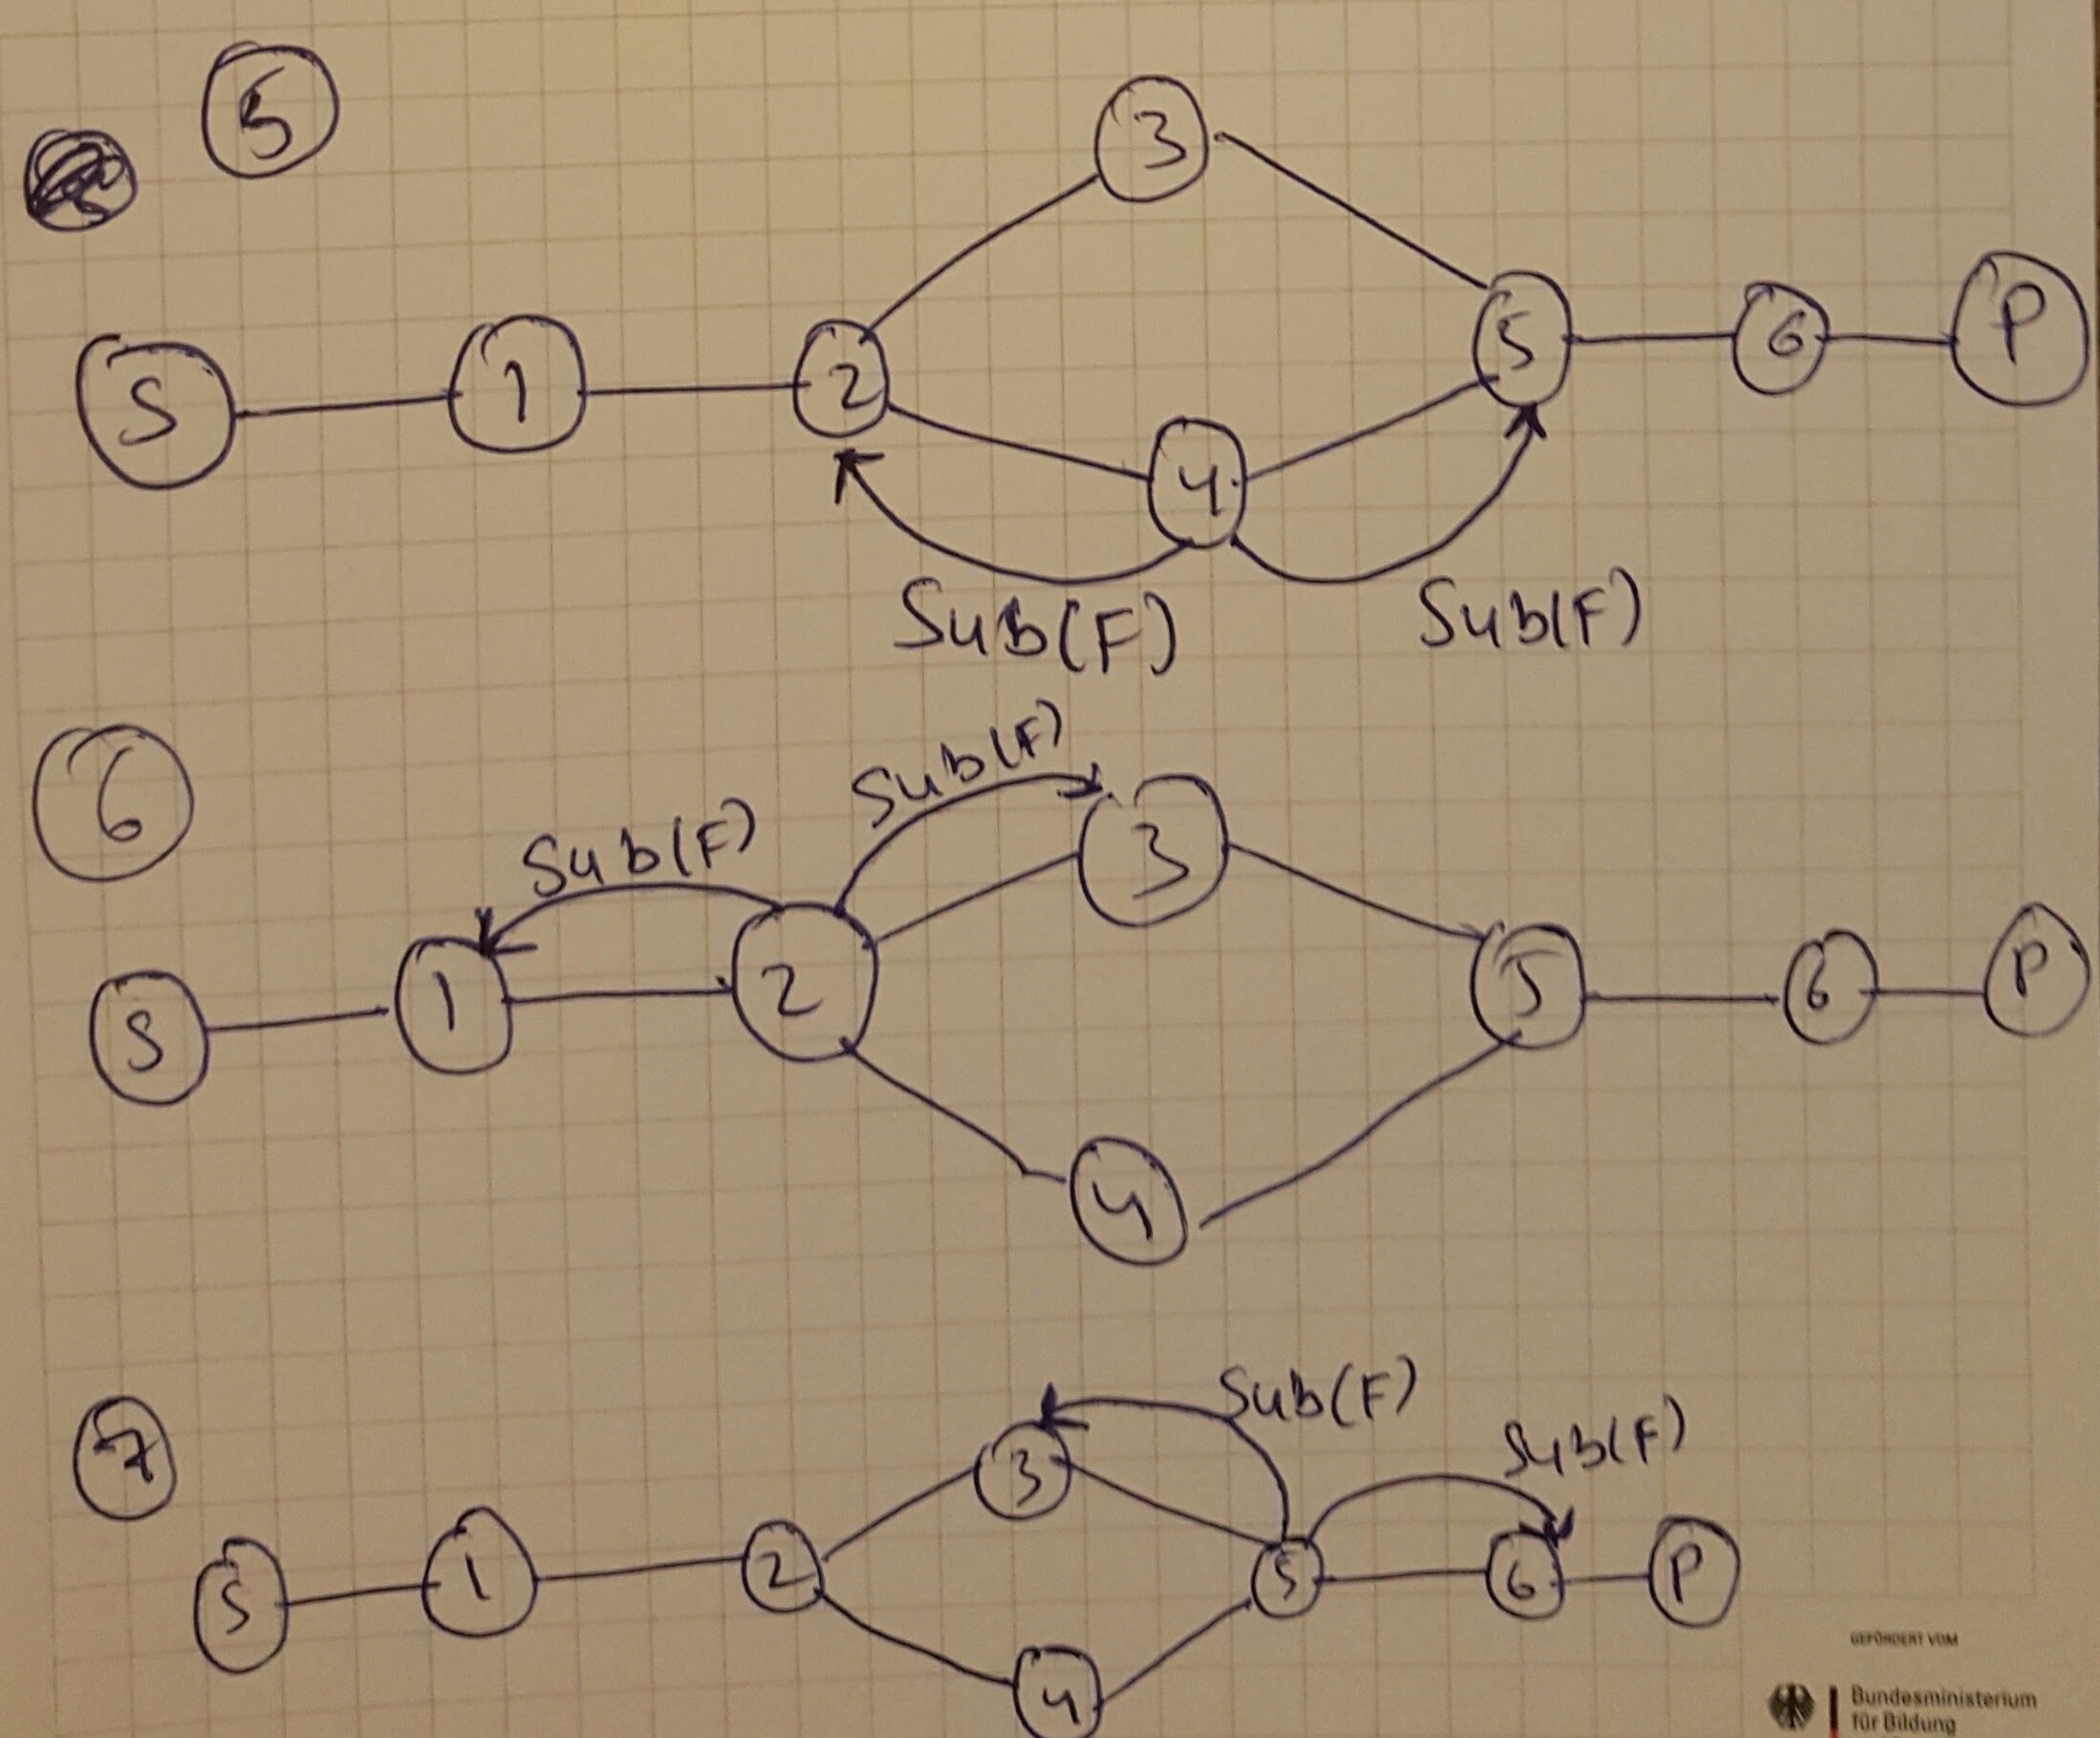 5
3
S 1 2 5 6 P
4
Sub(F) Sub(F)
6
Sub(F) Sub(F)
3
S 1 2 5 6 P
4
7
Sub(F)
Sub(F)
3
S 1 2 5 6 P
4
GEFÖRDERT VOM
Bundesministerium
für Bildung